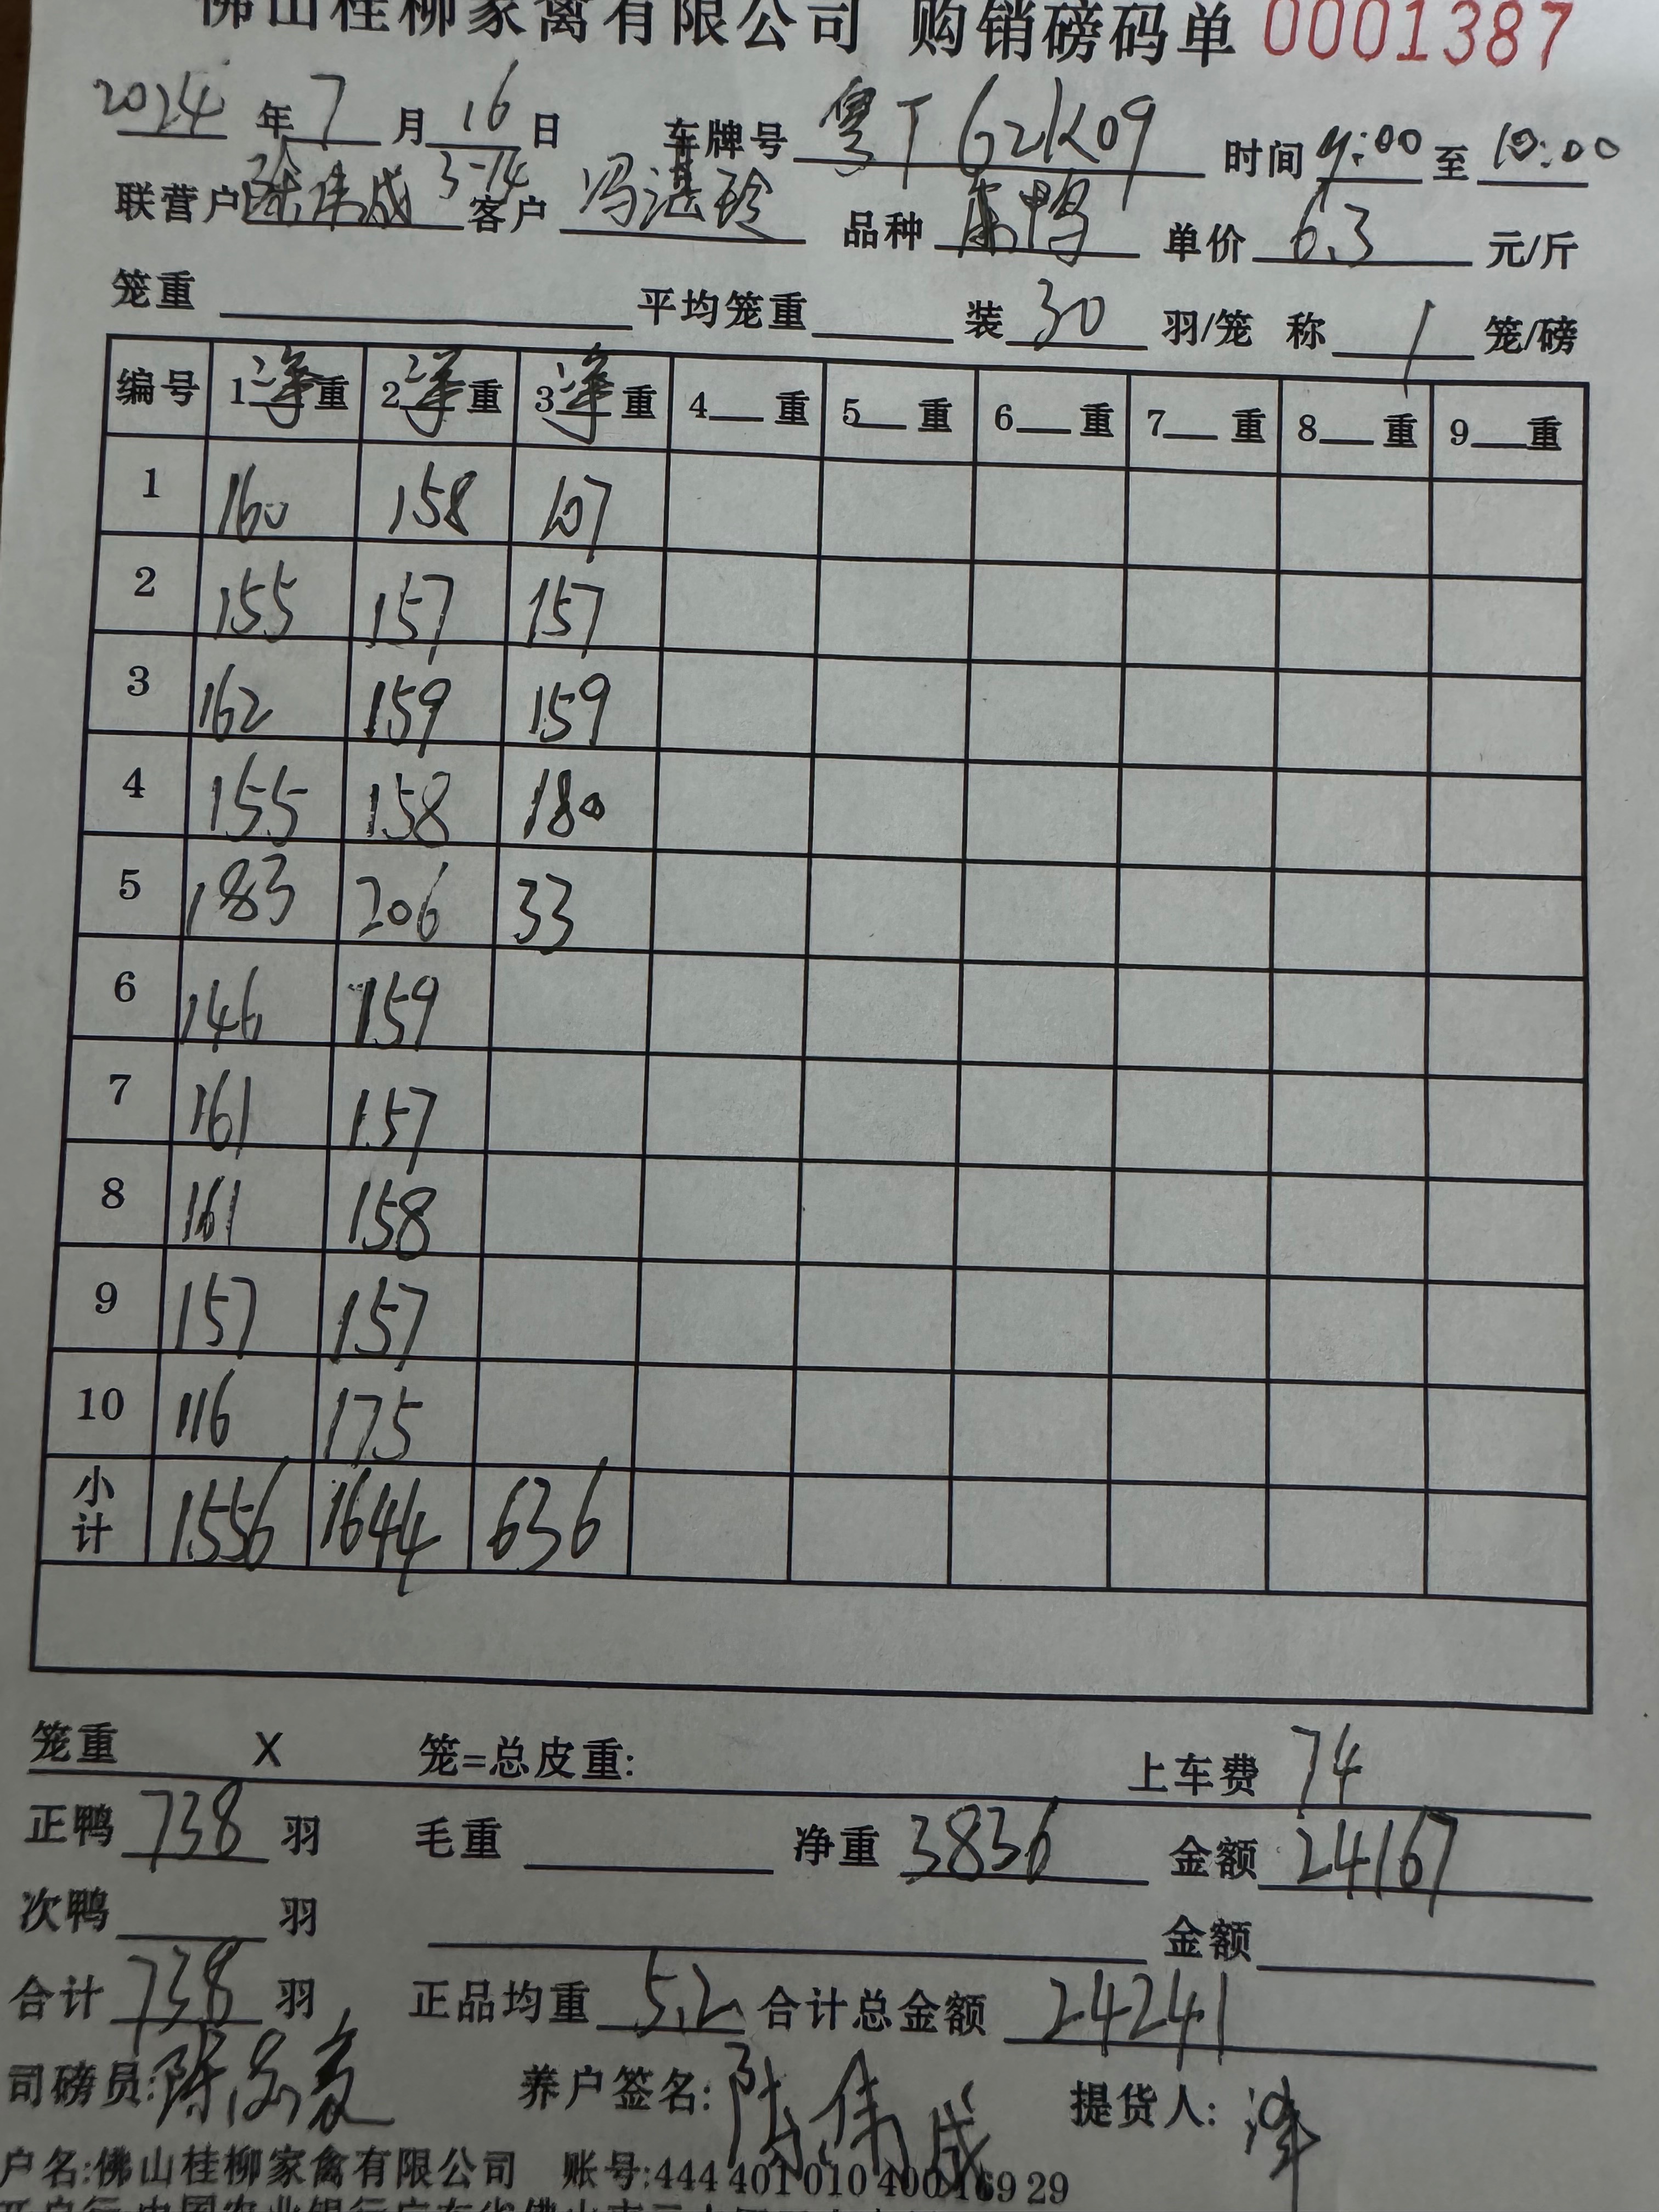 佛山桂柳家禽有限公司 购销磅码单 0001387
2024 年 7 月 16 日 车牌号 粤T 62K09 时间 9:00 至 10:00
联营户 陈伟成 3-14 客户 冯湛玲 品种 麻鸭 单价 6.3 元/斤
笼重 平均笼重 装 30 羽/笼 称 1 笼/磅
编号 1净重 2净重 3净重 4 重 5 重 6 重 7 重 8 重 9 重
1 160 158 107
2 155 157 157
3 162 159 159
4 155 158 180
5 183 206 33
6 146 159
7 161 157
8 161 158
9 157 157
10 116 175
小计 1556 1644 636
笼重 X 笼=总皮重: 上车费 74
正鸭 738 羽 毛重 净重 3836 金额 24167
次鸭 羽 金额
合计 738 羽 正品均重 5.2 合计总金额 24241
司磅员: 养户签名: 陈伟成 提货人:
户名:佛山桂柳家禽有限公司 账号:444 401 010 400 169 29